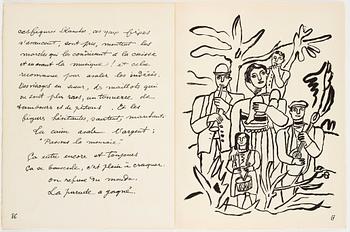 ces figures blanches, aux yeux fripés
s'avancent, sont pris, montent les
marches qui les conduisent à la caisse
et en avant la musique ! et cela
recommence pour avaler les indécis,
Les visages en sueur, de maillots qui
ne sont plus roses, un tonnerre de
tambours et de pistons. Et les
figures hésitantes, sautent,
La caisse avale l'argent :
"Passons la monnaie"
Ça entre encore et toujours
Ça se bouscule, c'est plein à craquer
on refuse du monde.
La parade a gagné.